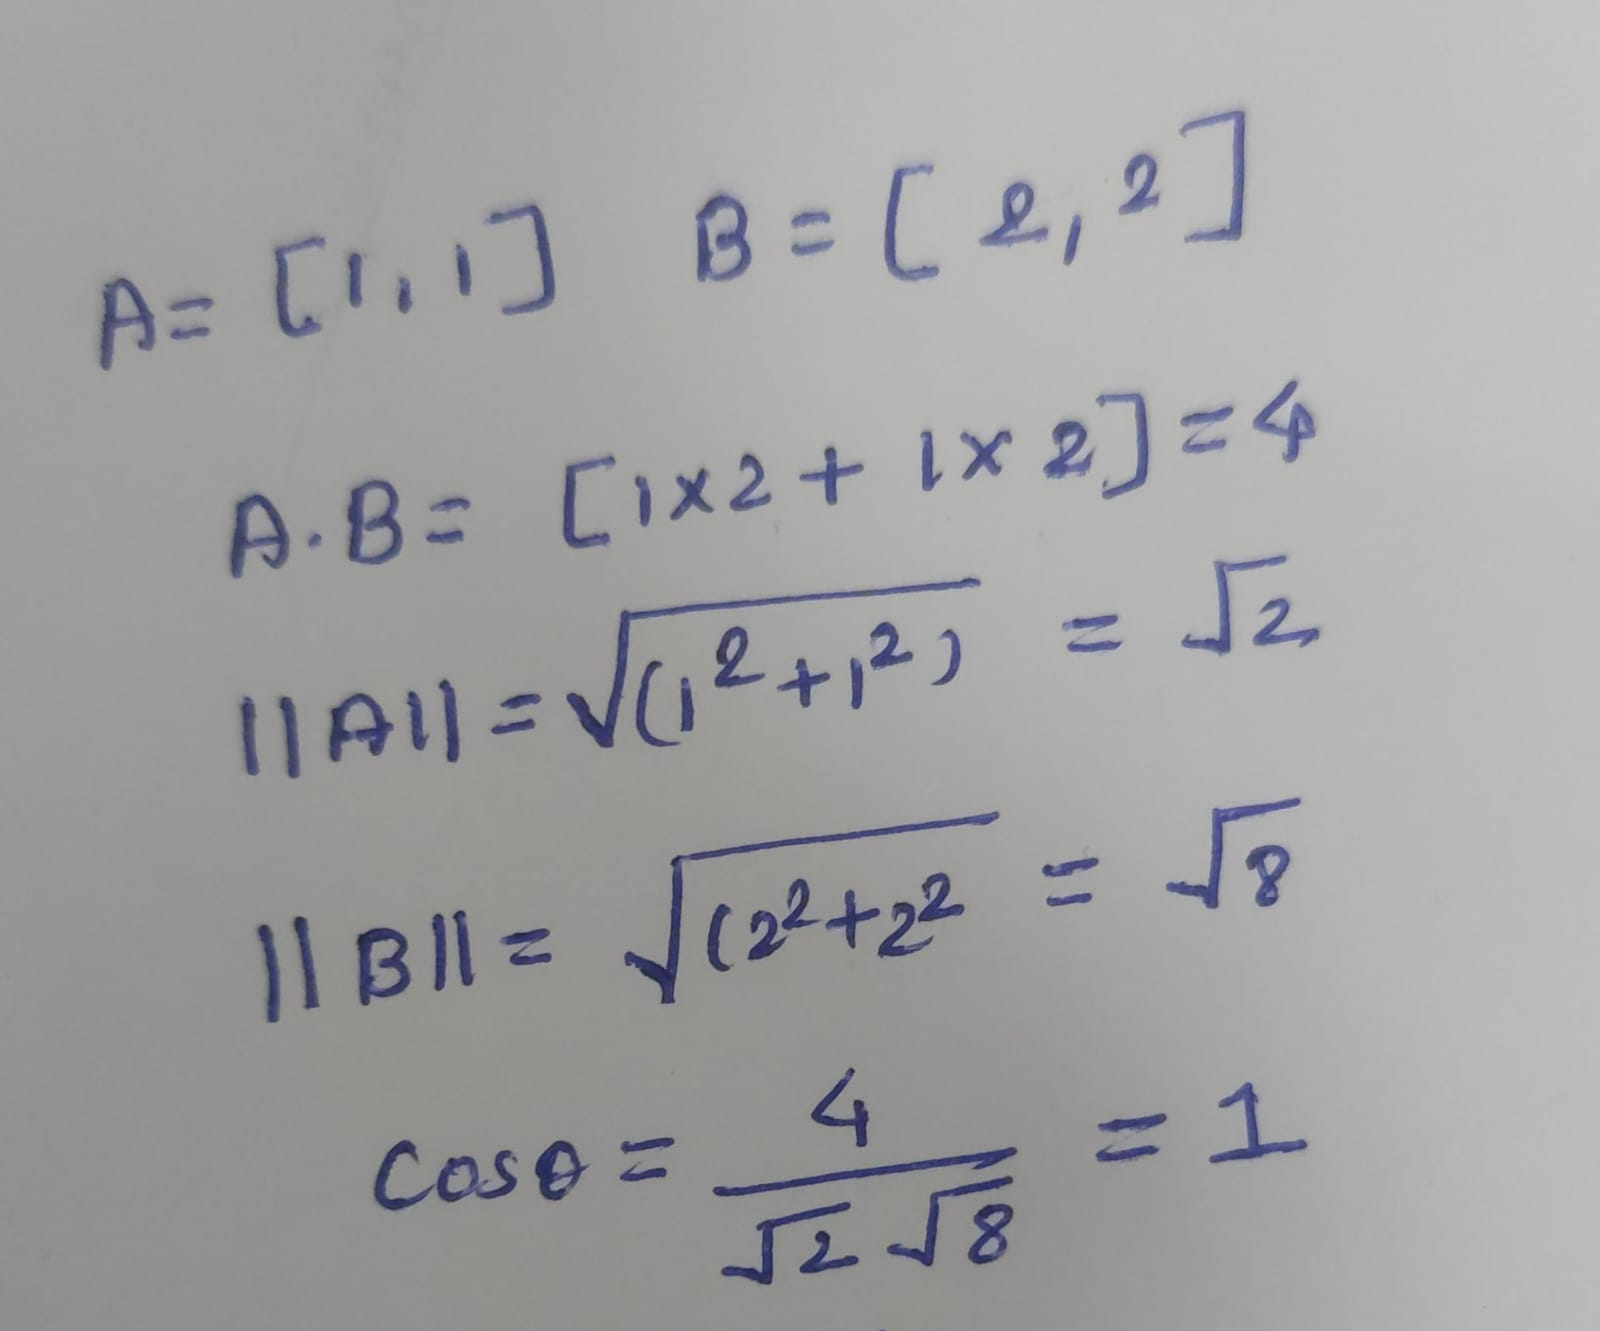 A= [1,1] B= [2,2]
A.B= [1x2+ 1x 2] =4
||A|| = √(1²+1²) = √2
||B|| = √(2²+2² = √8
Cosθ = 4/√2 √8 = 1